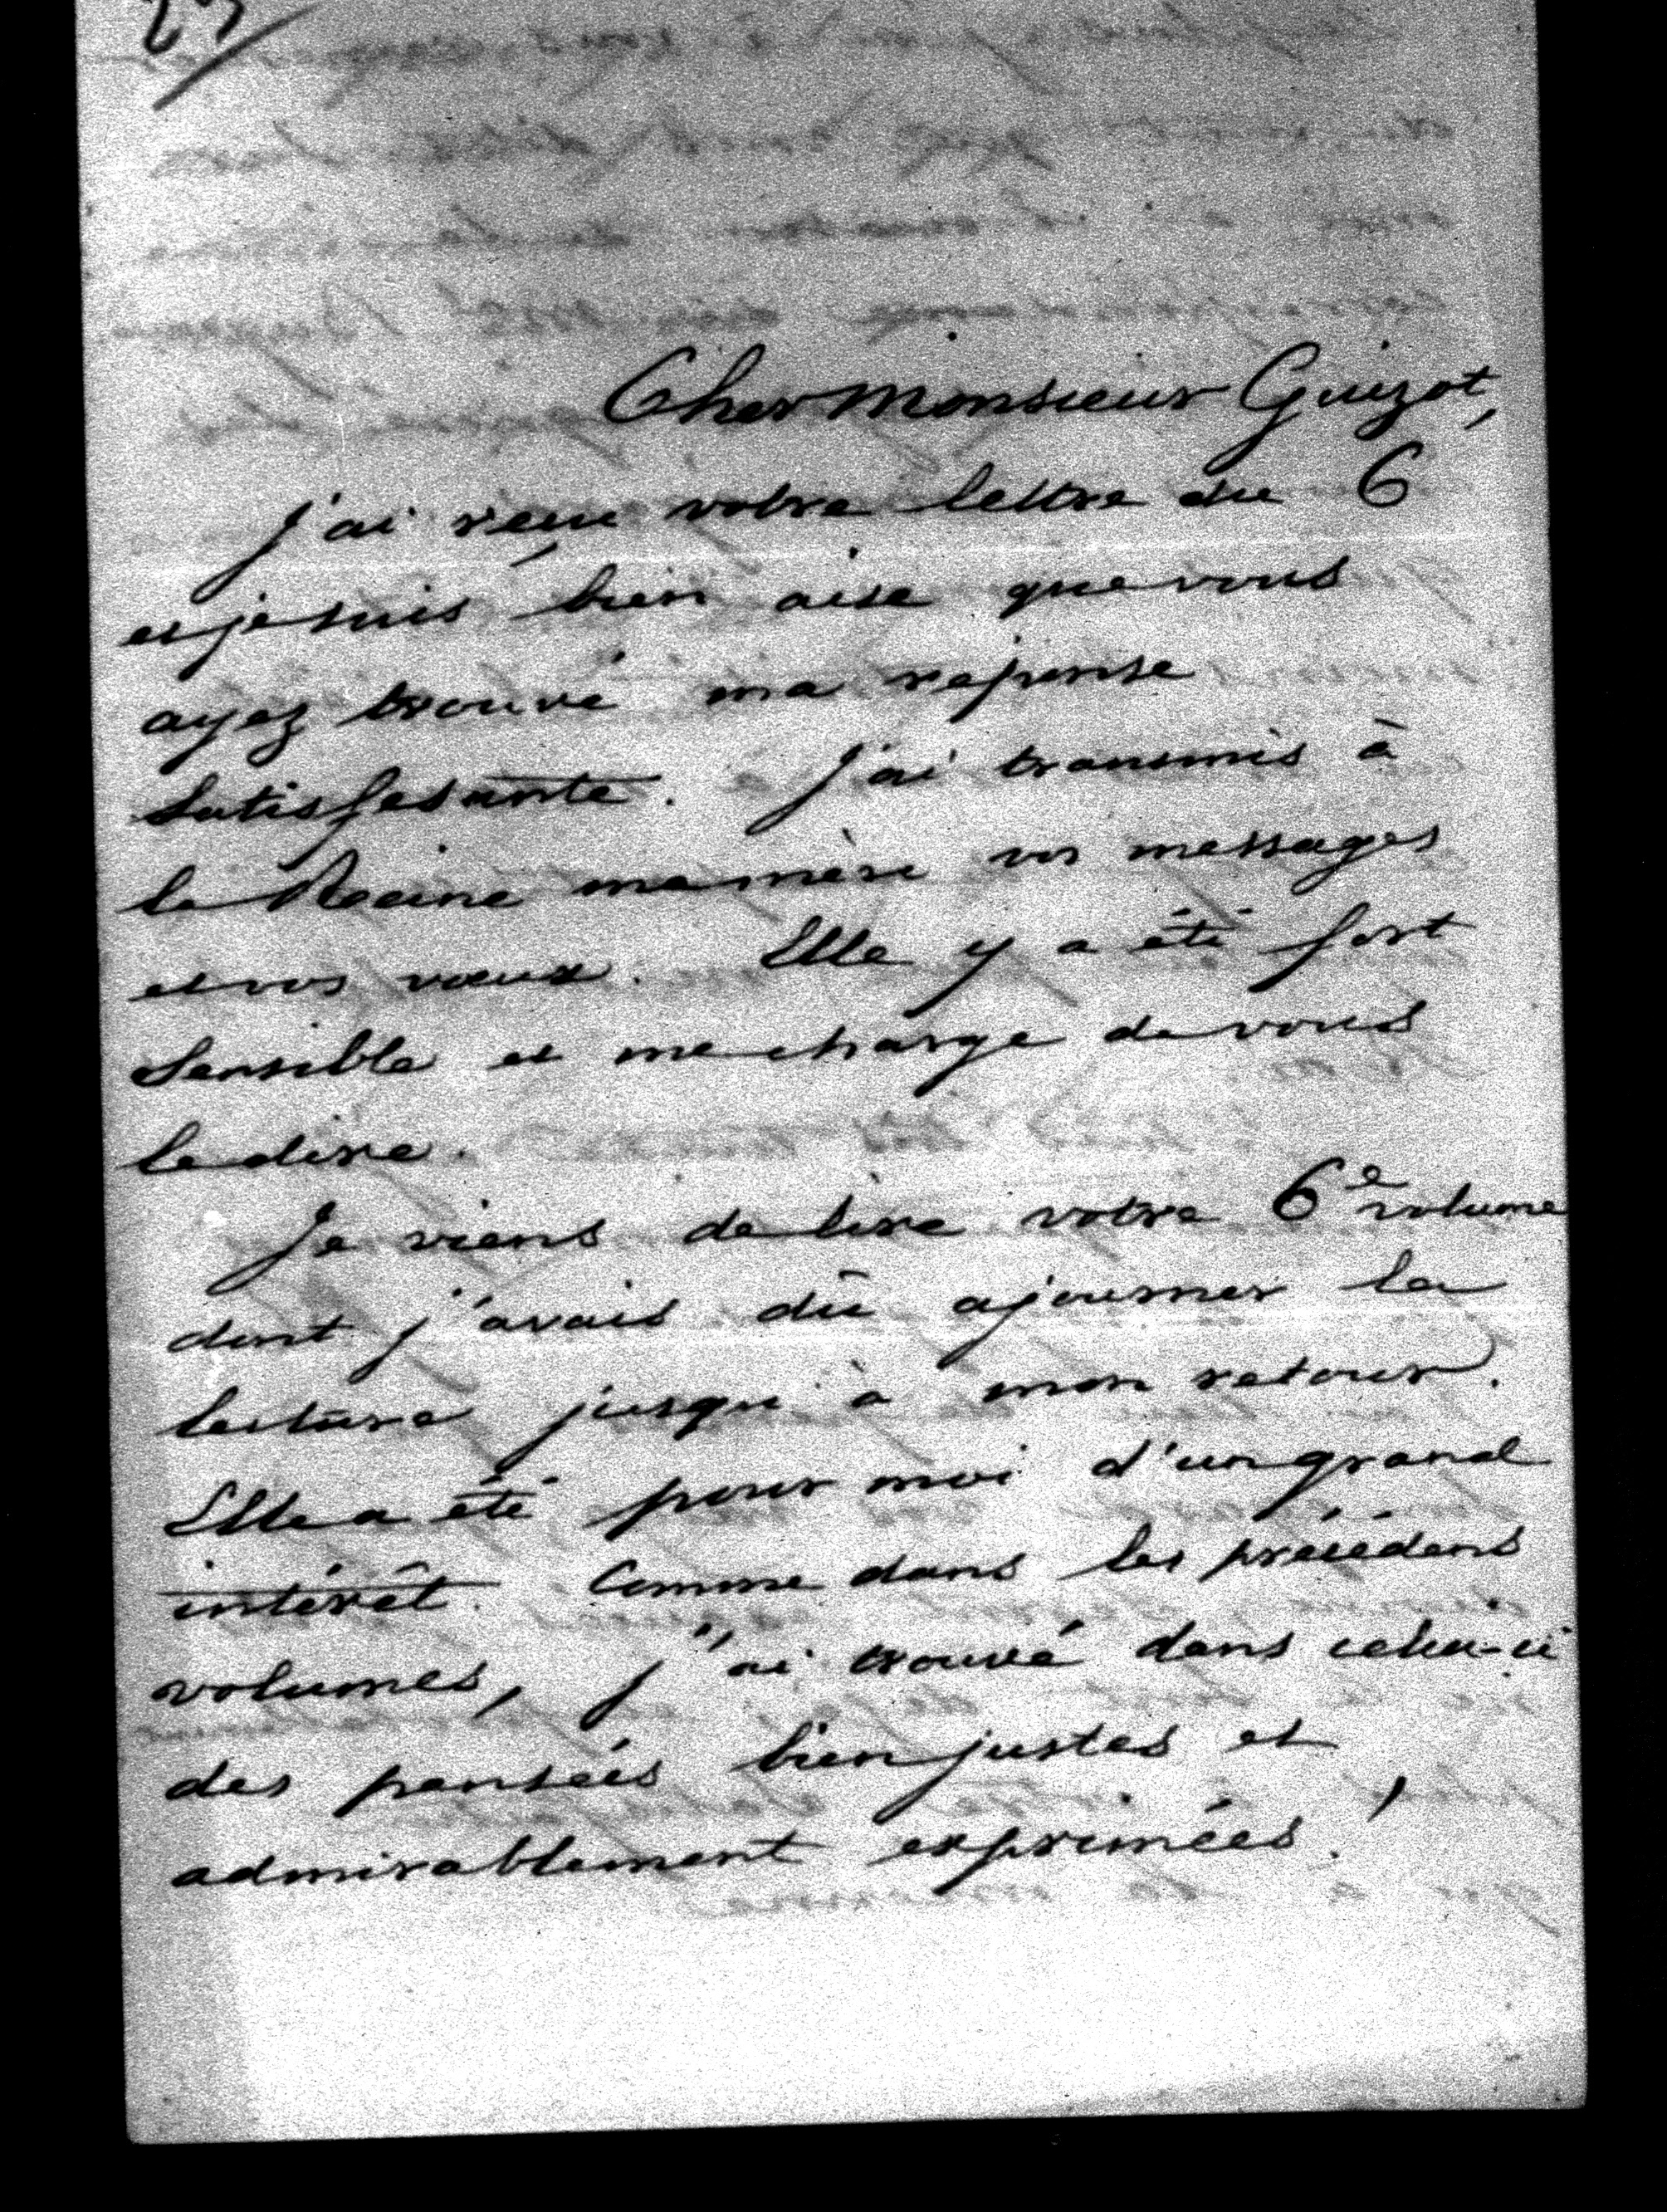 Cher Monsieur Guizot,
J'ai reçu votre lettre du 6
et je suis bien aise que vous
ayez trouvé ma reponse
satisfesante. J'ai transmis à
la Reine ma mère vos messages
et vos vœux. Elle y a été fort
sensible et me charge de vous
le dire.
Je viens de lire votre 6e volume
dont j'avais dû ajourner la
lecture jusqu'à mon retour.
Elle a été pour moi d'un grand
intérêt. Comme dans les précédens
volumes, j'ai trouvé dans celui-ci
des pensées bien justes et
admirablement exprimées!